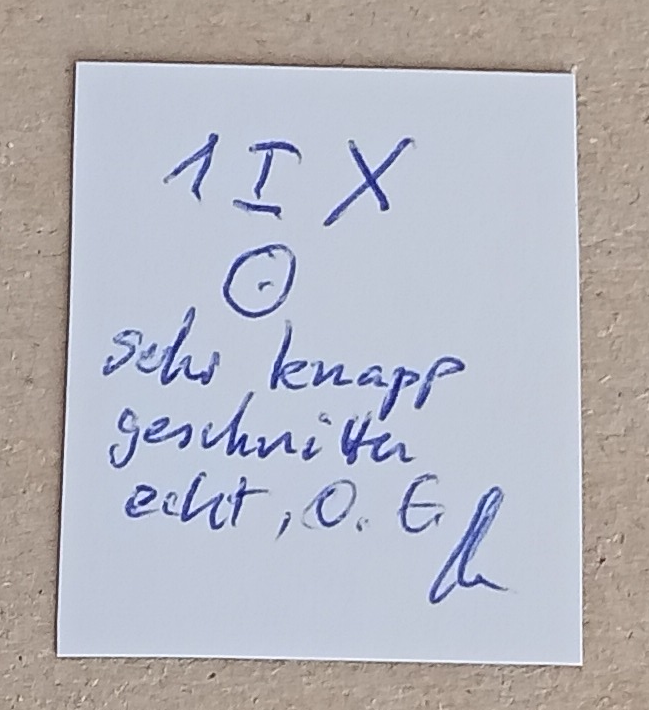 1 I X
⊙
sehr knapp
geschnitten
echt, O. G.